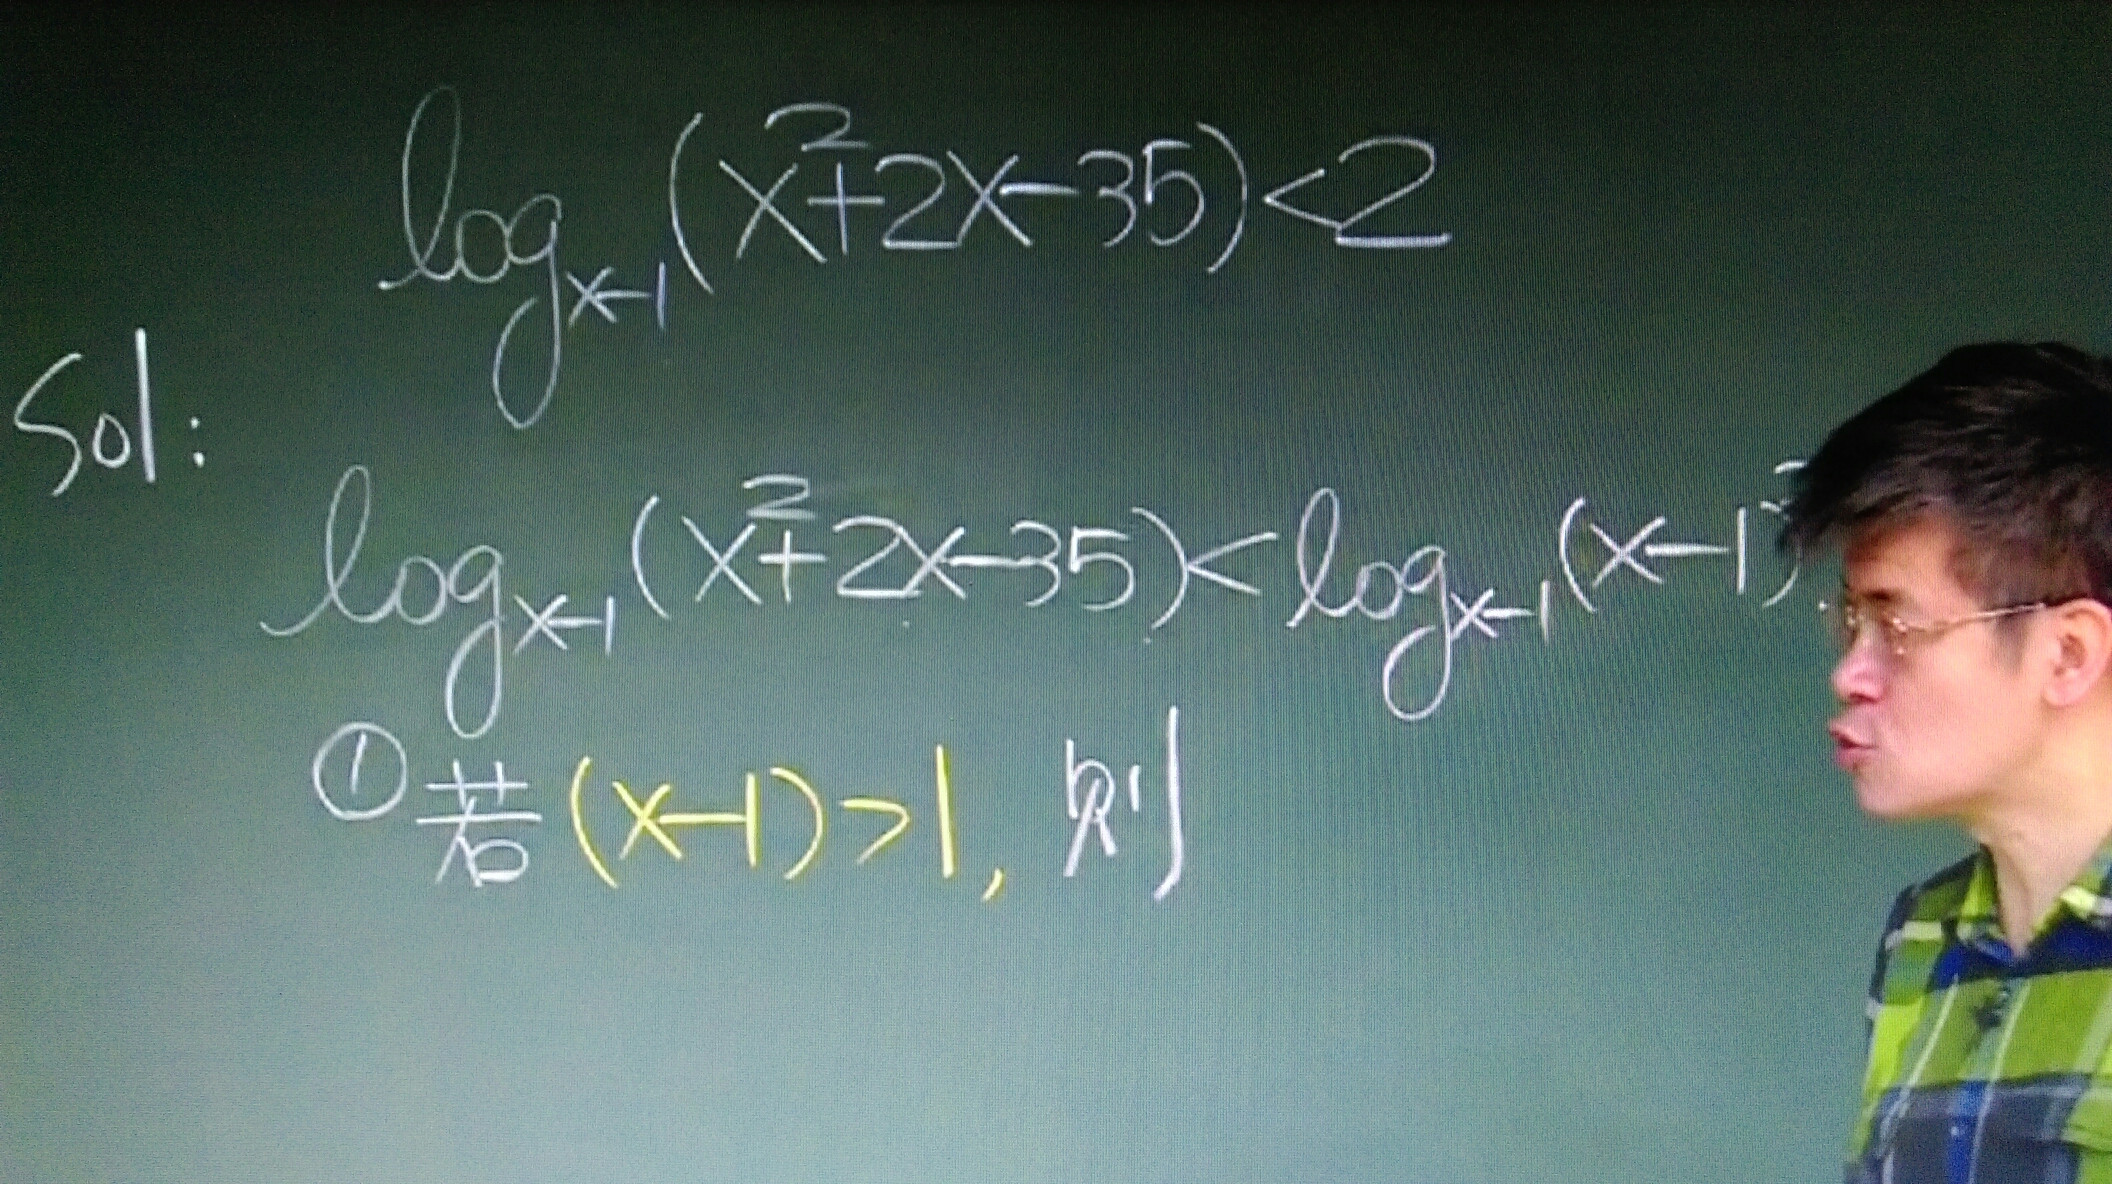 log_{x-1}(x²+2x-35)<2
Sol:
log_{x-1}(x²+2x-35)<log_{x-1}(x-1)²
①若(x-1)>1, 则